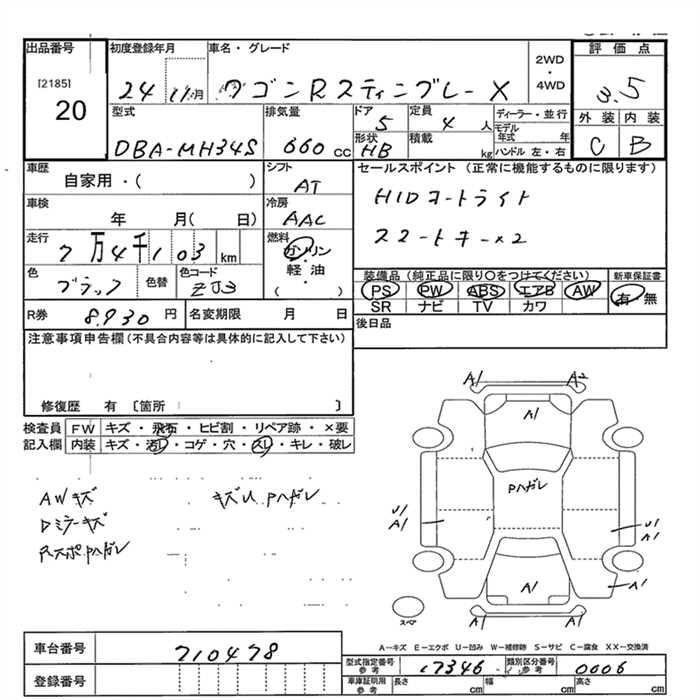 出品番号 初度登録年月 車名・グレード 評価点
[2185] 24 11月 ワゴンRスティングレーX 2WD・4WD 3.5
20
型式 排気量 ドア 5 定員 4 人 ディーラー・並行 外装 内装
モデル年式 年
DBA-MH34S 660 cc 形状 HB 積載 kg ハンドル 左・右 C B
車歴 シフト セールスポイント (正常に機能するものに限ります)
自家用・( ) AT HIDヨートライト
車検 冷房
年 月( 日) AAC スマートキー×2
走行 燃料
7万4千103 km ガソリン・軽油・( )
色 色替 色コード 装備品 (純正品に限り〇をつけてください) 新車保証書
ブラック ZJ3 PS PW ABS エアB AW 有・無
SR ナビ TV カワ
R券 8,930 円 名変期限 月 日 後日品
注意事項申告欄 (不具合内容等は具体的に記入して下さい)
修復歴 有 〔箇所 〕
検査員 FW キズ・飛石・ヒビ割・リペア跡・×要
記入欄 内装 キズ・汚レ・コゲ・穴・スレ・キレ・破レ
A1 A2
A1
Pハガレ
U1 A1
U1 A1
A1
A1
A1 A1
スペア
AWキズ キズU Pハガレ
Dミラーキズ
RスポPハガレ
A-キズ E-エクボ U-凹み W-補修跡 S-サビ C-腐食 XX-交換済
車台番号 710478
型式指定番号 参考 17346 類別区分番号 参考 0006
登録番号
車庫証明用 参考 長さ cm 幅 cm 高さ cm